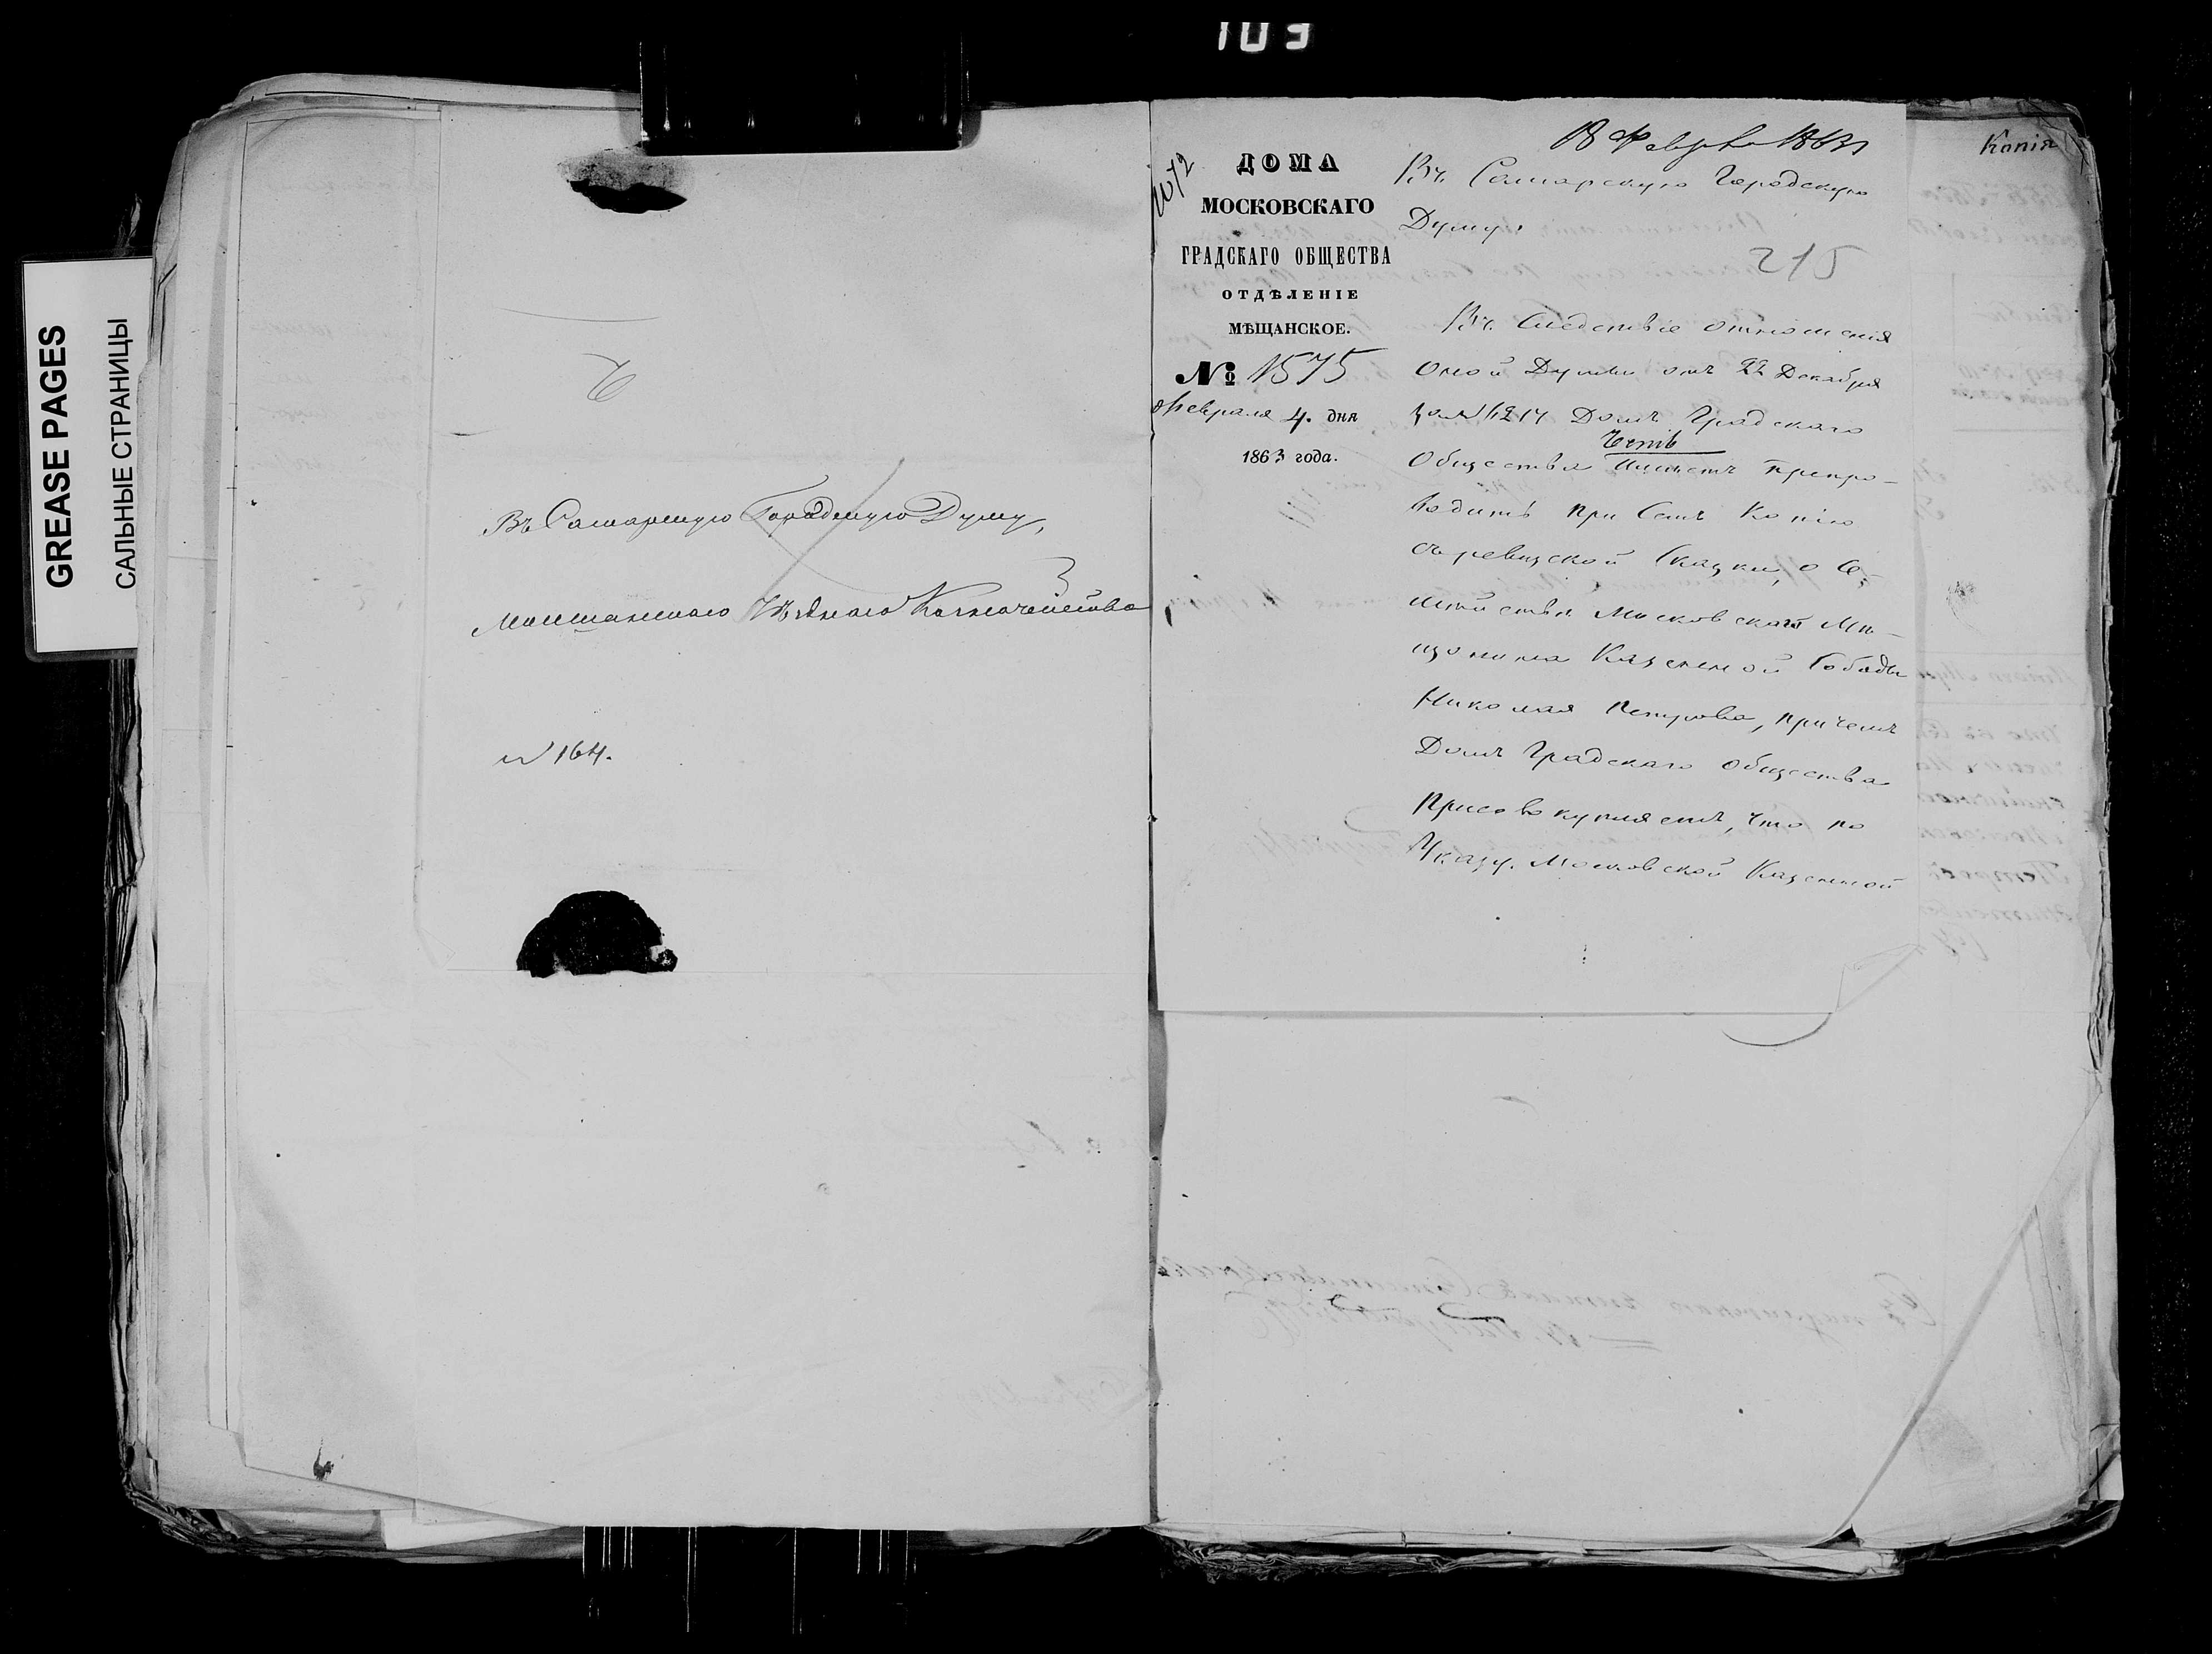 103
GREASE PAGES
САЛЬНЫЕ СТРАНИЦЫ
Въ Самарскую Городскую Думу,
Мокшанскаго Уѣзднаго Казначейства
№ 164.
ДОМА
МОСКОВСКАГО
ГРАДСКАГО ОБЩЕСТВА
ОТДѢЛЕНІЕ
МѢЩАНСКОЕ.
№ 1575
Февраля 4. дня
1863 года.
18 Февраля 1863
Въ Самарскую Городскую
Думу.
215
Въ Следствіе отношенія
оной Думы отъ 22 Декабря
за № 4214 Домъ Градскаго
честь
Общества имѣетъ препро-
водить при семъ Копію
съ ревизской Сказки, о Се-
мействѣ Московскаго Мѣ-
щанина Казенной Слободы
Николая Петрова, причемъ
Домъ Градскаго Общества
присовокупляетъ, что по
Указу Московской Казенной
Копія